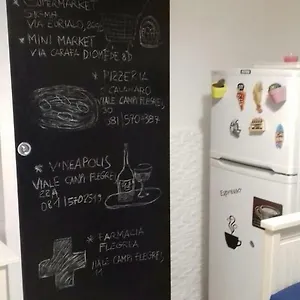 SUPERMARKET
SIGMA
VIA EURIALO, 200
* MINI MARKET
VIA CARAFA DIOMEDE 80
* PIZZERIA
CALAMARO
VIALE CAMPI FLEGREI,
30
081/5704387
* VINEAPOLIS
VIALE CAMPI FLEGREI
22A
081/5702519
* FARMACIA
FLEGREA
VIALE CAMPI FLEGREI,
11
Espresso